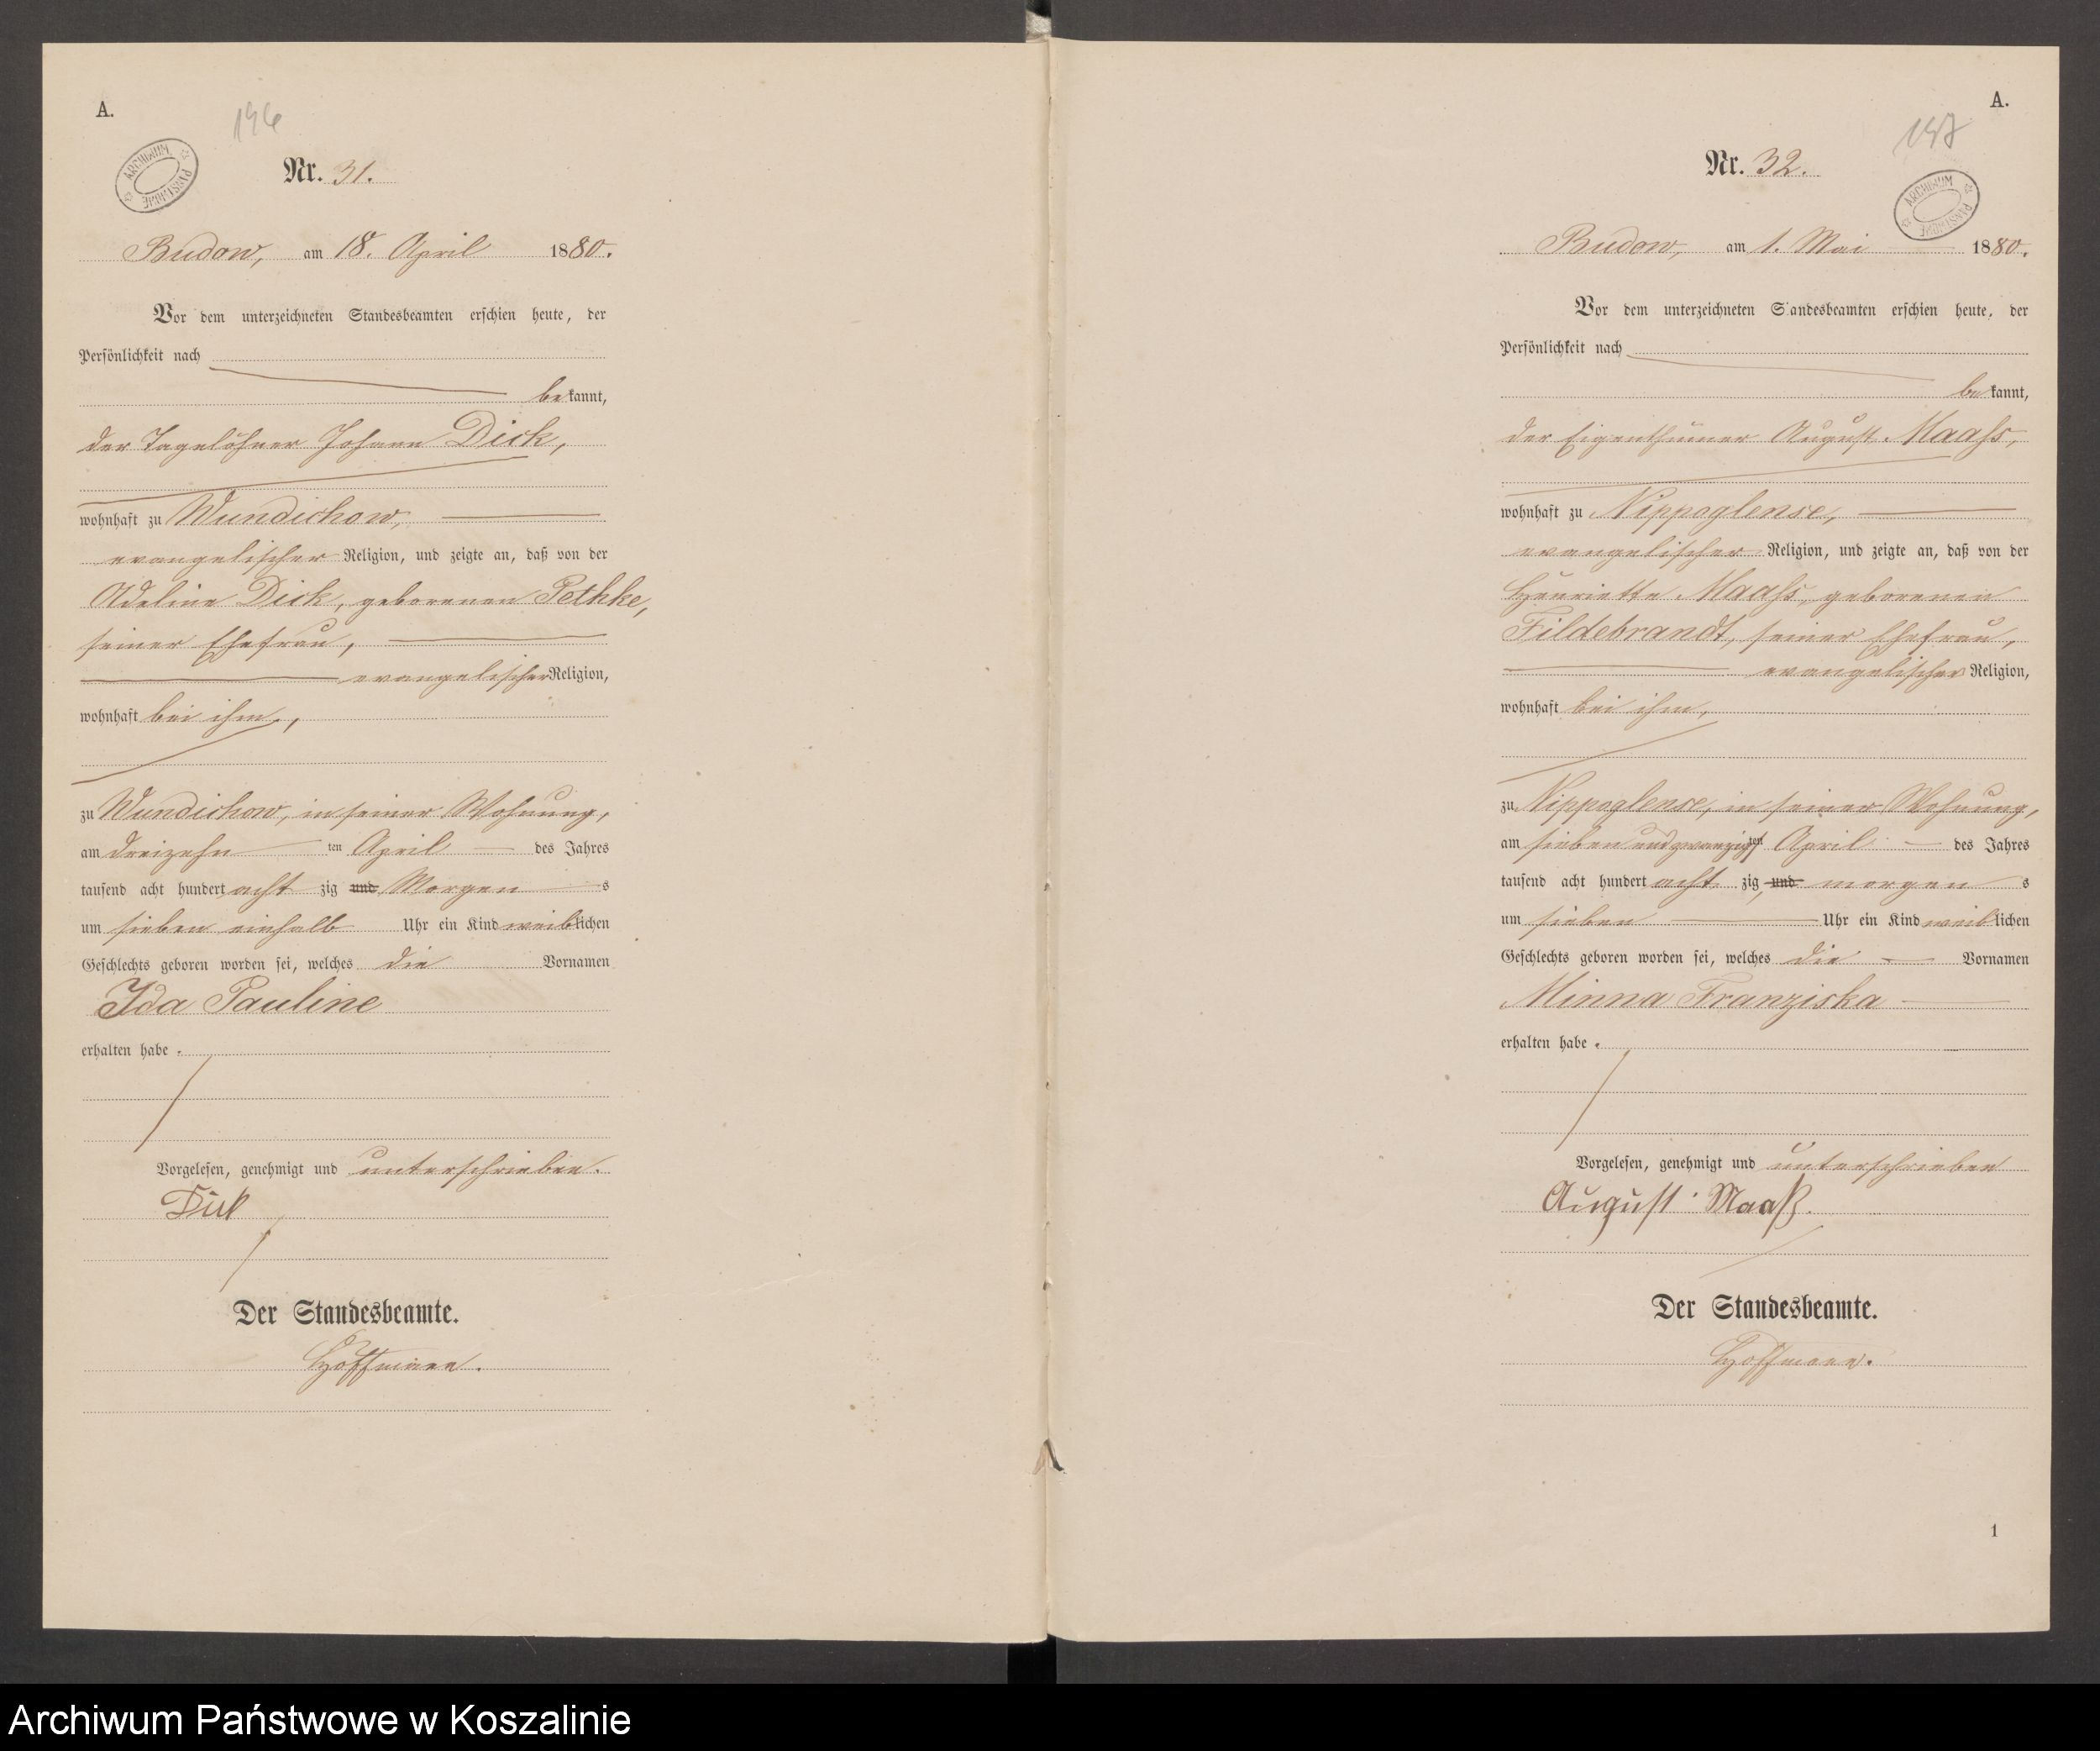 A.
196
ARCHIWUM PAŃSTWOWE
Nr. 31.
Budow, am 18. April 1880.
Vor dem unterzeichneten Standesbeamten erschien heute, der
Persönlichkeit nach
bekannt,
der Tagelöhner Johann Dick,
wohnhaft zu Wundichow,
evangelischer Religion, und zeigte an, daß von der
Adeline Dick, geborenen Pethke,
seiner Ehefrau,
evangelischer Religion,
wohnhaft bei ihm,
zu Wundichow, in seiner Wohnung,
am dreizehn ten April des Jahres
tausend acht hundert acht zig und Morgen s
um sieben einhalb Uhr ein Kind weiblichen
Geschlechts geboren worden sei, welches die Vornamen
Ida Pauline
erhalten habe.
Vorgelesen, genehmigt und unterschrieben.
Dick
Der Standesbeamte.
Hoffmann.
A.
197
ARCHIWUM PAŃSTWOWE
Nr. 32.
Budow, am 1. Mai 1880.
Vor dem unterzeichneten Standesbeamten erschien heute, der
Persönlichkeit nach
bekannt,
der Eigenthümer August Maahs,
wohnhaft zu Nippoglense,
evangelischer Religion, und zeigte an, daß von der
Henriette Maahs, geborenen
Fildebrandt, seiner Ehefrau,
evangelischer Religion,
wohnhaft bei ihm,
zu Nippoglense, in seiner Wohnung,
am siebenundzwanzigsten April des Jahres
tausend acht hundert acht zig, und morgen s
um sieben Uhr ein Kind weiblichen
Geschlechts geboren worden sei, welches die Vornamen
Minna Franziska
erhalten habe.
Vorgelesen, genehmigt und unterschrieben
August Maaß.
Der Standesbeamte.
Hoffmann.
1
Archiwum Państwowe w Koszalinie